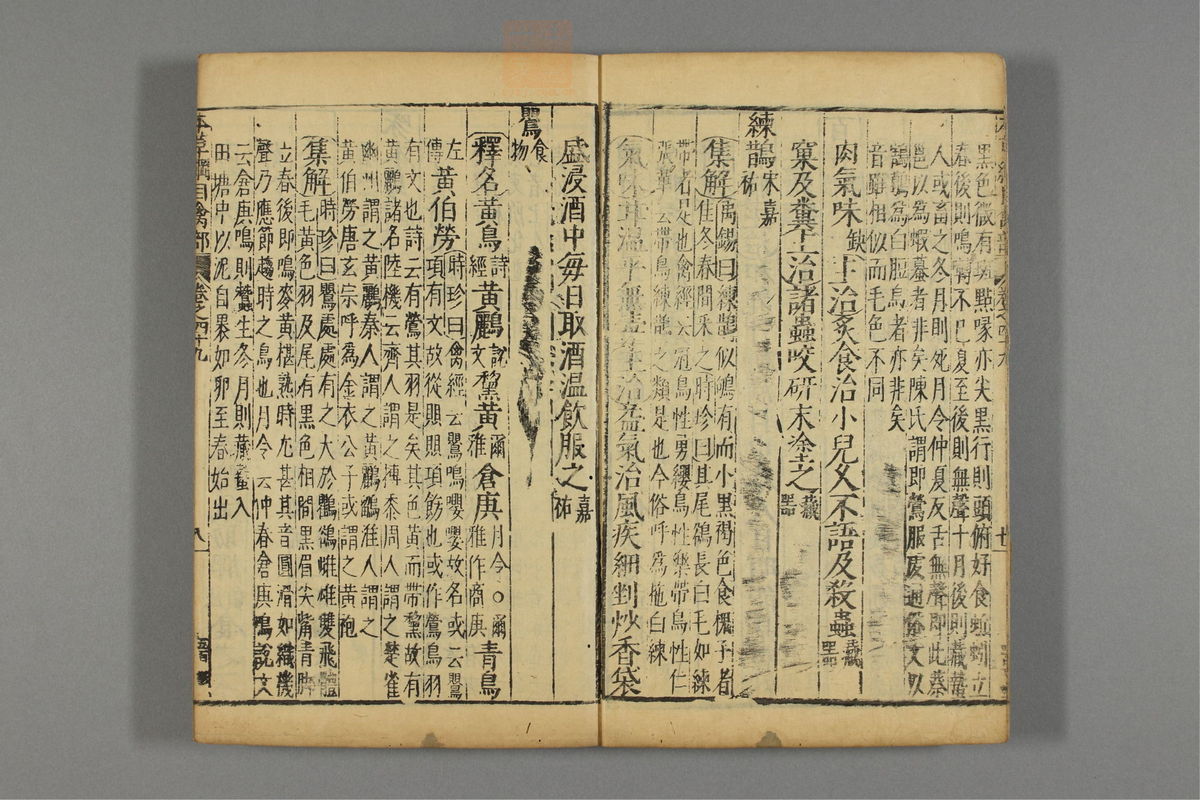 黑色微有斑點喙亦尖黑行則頭俯好食蚯蚓立
春後則鳴囀不已夏至後則無聲十月後則藏蟄
人或畜之冬月則死月令仲夏反舌無聲即此蔡
邕以為蝦蟇者非矣陳氏謂即鶯服虔通俗文以
鶷鶡為白脰烏者亦非矣
音雖相似而毛色不同
肉氣味缺主治炙食治小兒久不語及殺蟲藏器
窠及糞主治諸蟲咬研末塗之藏器
練鵲宋嘉祐
集解禹錫曰練鵲似鴝有而小黑褐色食槐子者
佳冬春間采之時珍曰其尾鵒長白毛如練
帶者是也禽經云冠鳥性勇纓鳥性樂帶鳥性仁
張華云帶鳥練鵲之類是也今俗呼為拖白練
氣味甘溫平無毒主治益氣治風疾細剉炒香袋
盛浸酒中每日取酒溫飲服之嘉祐
鸎食物
釋名黃鳥詩經黃鸝說文黧黃爾雅倉庚月令○爾雅作商庚青鳥
左傳黃伯勞時珍曰禽經云鸎鳴嚶嚶故名或云鸎
項有文故從賏賏項飾也或作鶯鳥羽
有文也詩云有鶯其羽是矣其色黃而帶黧故有
黃鸝諸名陸機云齊人謂之摶黍周人謂之楚雀
幽州謂之黃鸝秦人謂之黃鸝鶹淮人謂之
黃伯勞唐玄宗呼為金衣公子或謂之黃袍
集解時珍曰鸎處處有之大於鸜鵒雌雄雙飛體
毛黃色羽及尾有黑色相間黑眉尖觜青脚
立春後即鳴麥黃椹熟時尤甚其音圓滑如織機
聲乃應節趨時之鳥也月令云仲春倉庚鳴說文
云倉庚鳴則蠶生冬月則藏蟄入
田塘中以泥自裹如卵至春始出
本草綱目禽部 卷之四十九 八